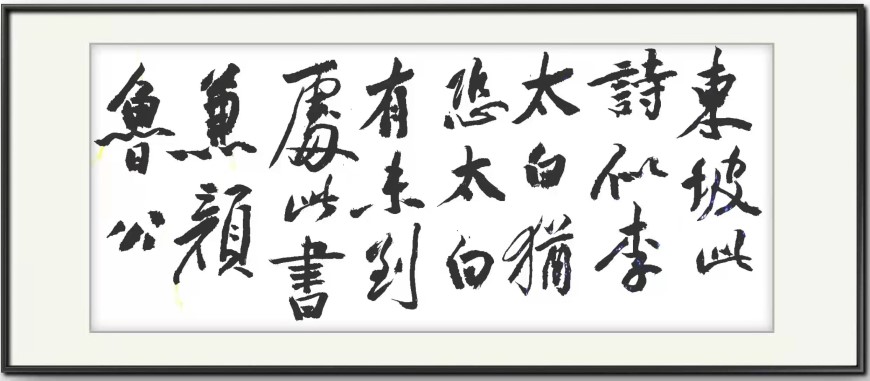 東坡此
詩似李
太白猶
恐太白
有未到
處此書
兼顏
魯公